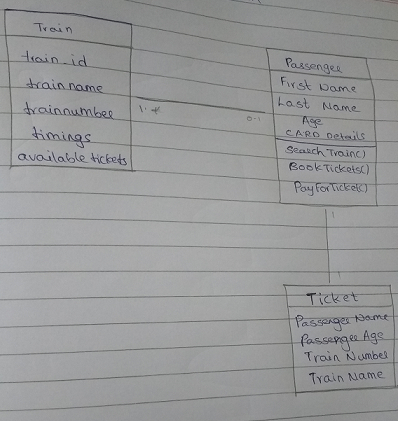 Train
train_id
trainname
trainnumber
timings
available tickets
1..*
0..1
Passenger
First Name
Last Name
Age
CARD Details
SearchTrain()
BookTickets()
PayForTicket()
1
1
Ticket
Passenger Name
Passenger Age
Train Number
Train Name